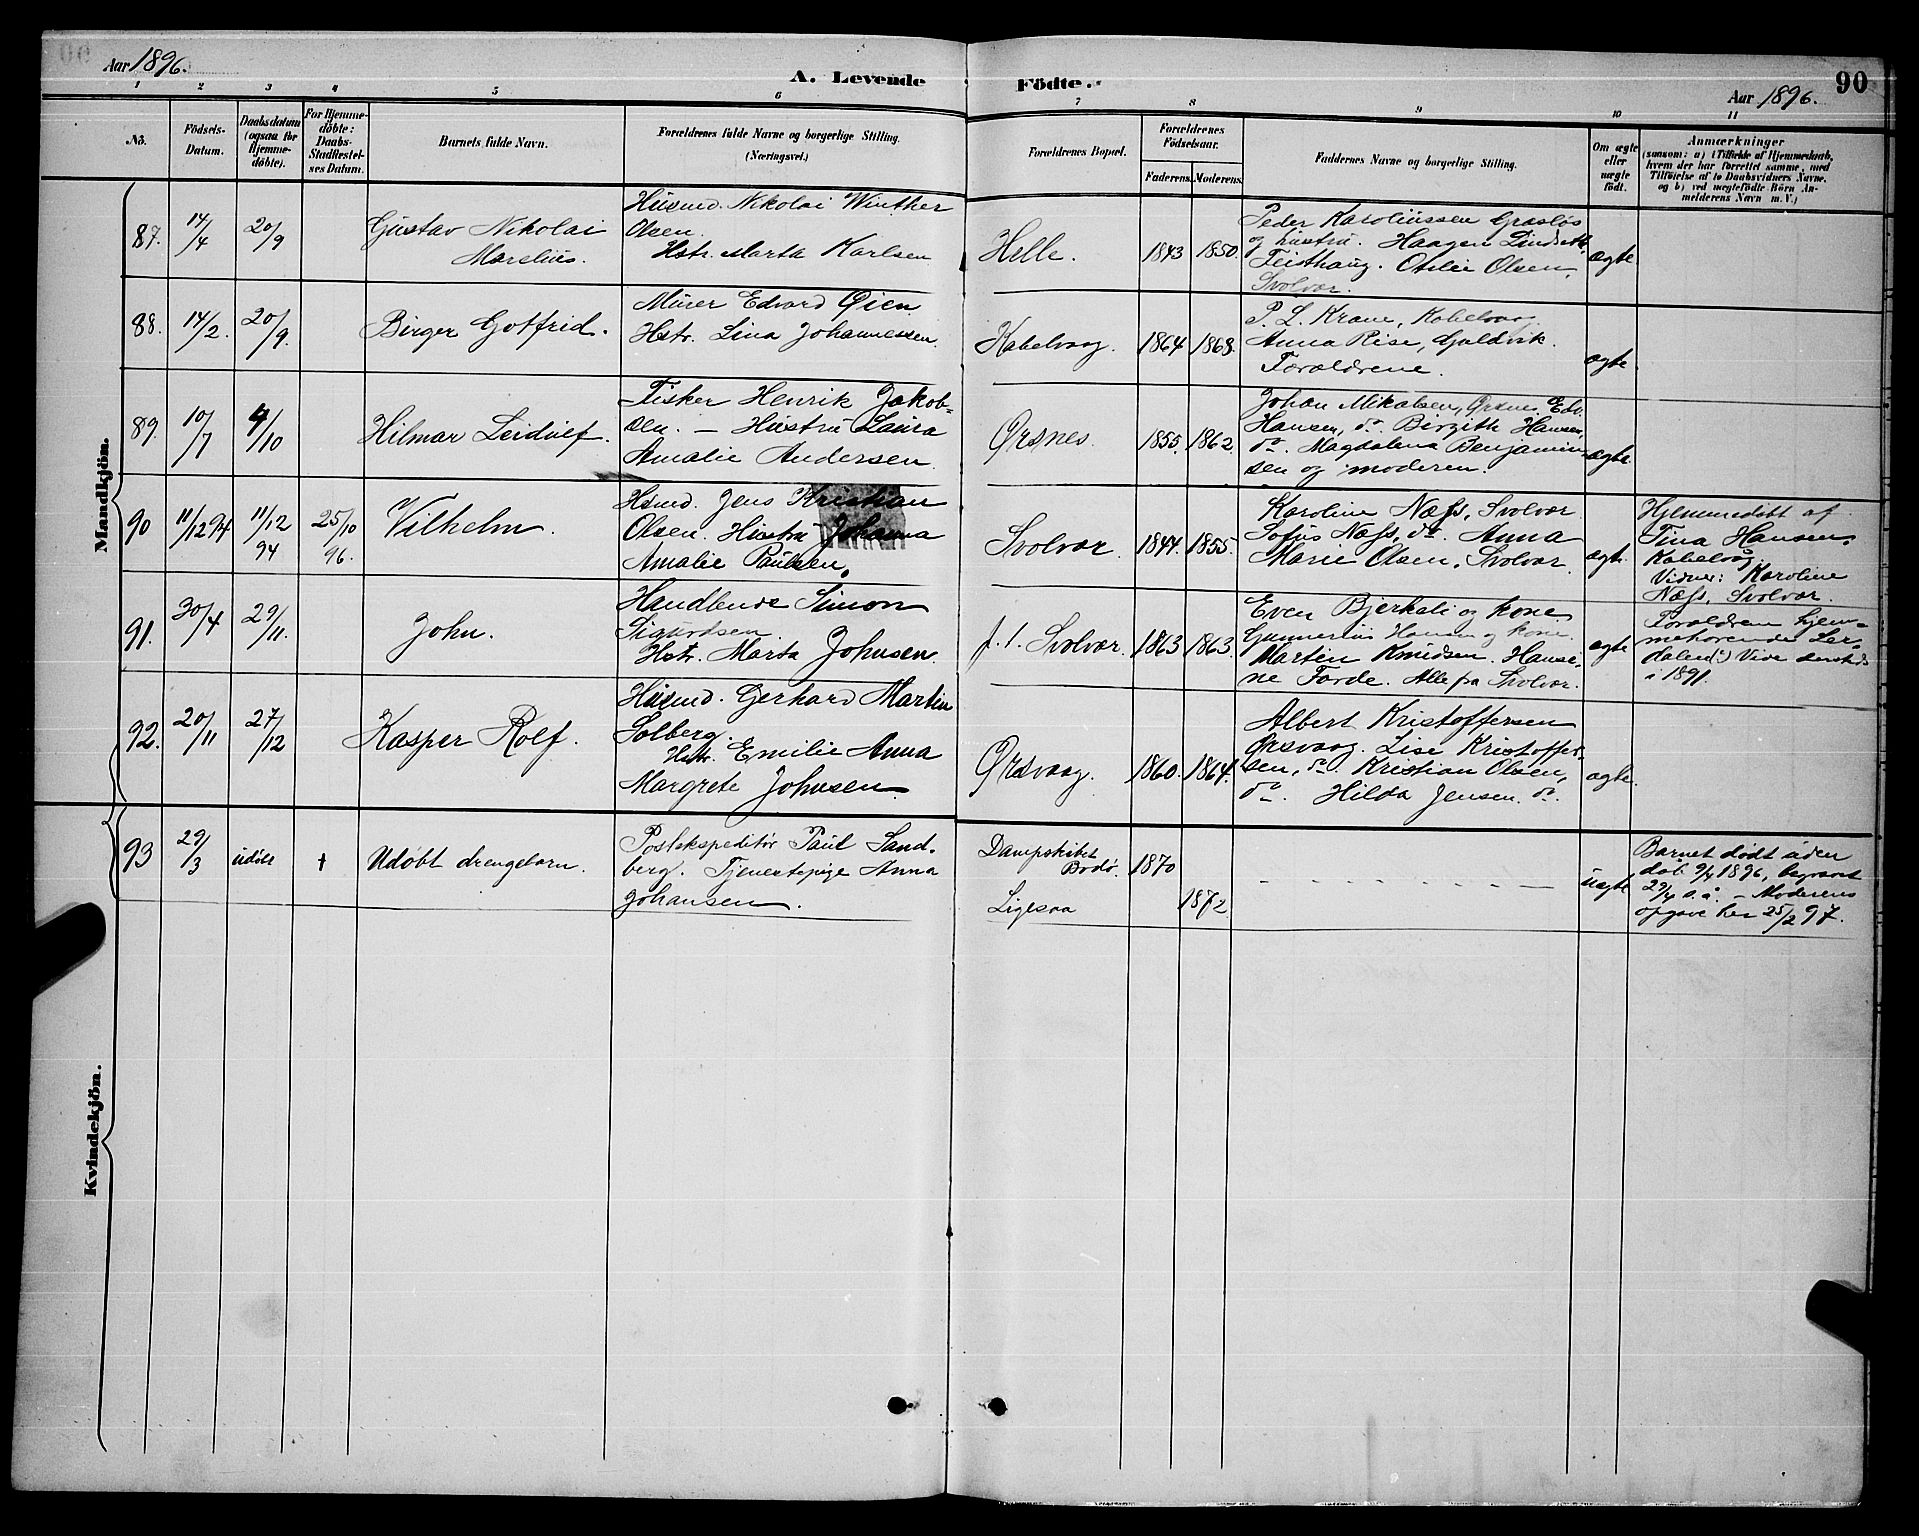 Aar 1896.
A. Levende Födte.
90
Aar 1896.
1 2 3 4 5 6 7 8 9 10 11
No.
Födsels-Datum.
Daabsdatum (ogsaa for Hjemme-döbte).
For Hjemme-döbte: Daabs-Stadfæstel-ses Datum.
Barnets fulde Navn.
Forældrenes fulde Navne og borgerlige Stilling.
(Næringsvei.)
Forældrenes Bopæl.
Forældrenes Födselsaar.
Faderens. Moderens.
Faddernes Navne og borgerlige Stilling.
Om ægte eller uægte födt.
Anmærkninger
(saasom: a) i Tilfælde af Hjemmedaab, hvem der har forrettet samme, med Tilföielse af to Daabsvidners Navne, og b) ved uægtefödte Börn An-melderens Navn m. V.)
Mandkjön.
87. 14/4 20/9 Gustav Nikolai Marelius.
Husmd. Nikolai Winther
Olsen.
Hstr. Marta Karlsen
Helle. 1843 1850.
Peder Karoliussen Grasløs
og hustru. Haagen Lindseth,
Feisthaug. Otelie Olsen,
Svolvær.
ægte
88. 14/2. 20/9. Birger Gotfrid.
Murer Edvard Øien
Hstr. Lina Johannessen.
Kabelvaag. 1864 1868.
P. L. Krane, Kabelvaag.
Anna Rise, Guldvik.
Forældrene.
ægte
89. 10/7 4/10 Hilmar Leidulf.
Fisker Henrik Jakob-
sen. — Hustru Laura
Amalie Andersen.
Ørsnes. 1855. 1862.
Johan Mikalsen, Ørsnes. Edv.
Hansen, do. Birgith Hansen,
do. Magdalena Benjamin-
sen og moderen.
ægte.
90 11/12 94 11/12 94 25/10 96. Vilhelm.
Hsmd. Jens Kristian
Olsen. Hustru Johanna
Amalie Paulsen.
Svolvær. 1844. 1855.
Karoline Næss, Svolvær
Sofus Næss, do. Anna
Marie Olsen, Svolvær.
ægte.
Hjemmedøbt af
Tina Hansen,
Kabelvåg.
Vidner: Karoline
Næss, Svolvær.
91. 30/4 29/11. John.
Handlende Simon
Sigurdsen.
Hstr. Marta Johnsen.
f. t. Svolvær. 1863 1863.
Even Bjerkeli og kone
Gunnerius Hansen og kone.
Martin Knudsen. Hansi-
ne Förde. Alle fra Svolvær.
ægte
Forældrene hjem-
mehørende
i 1891.
92. 20/11 27/12 Kasper Rolf.
Husmd. Gerhard Martin
Solberg.
Hstr. Emilie Anna
Margrete Johnsen.
Ørsvaag. 1860. 1864.
Albert Kristoffersen
Ørsvaag. Lise Kristoffer-
sen, do. Kristian Olsen,
do. Hilda Jensen. do.
ægte.
Kvindekjön.
93 29/3 udøbt + Udøbt drengebarn.
Postekspeditør Paul Sand-
berg. Tjenestepige Anna
Johansen.
Dampskibet
Bodø. 1870
Ligesaa 1872
uægte
Barnet dødt uden
dåb 9/4 1896, begravet
29/4 s.å. — Moderens
opgave her 25/2 97.